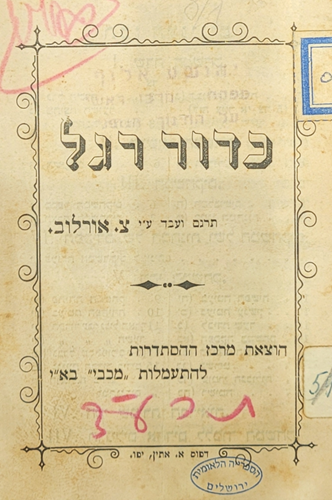 כדור רגל
תרגם ועבד ע״י צ. אורלוב.
הוצאת מרכז ההסתדרות
להתעמלות „מכבי״ בא״י
דפוס א. אתין, יפו.
הספריה הלאומית
ירושלים